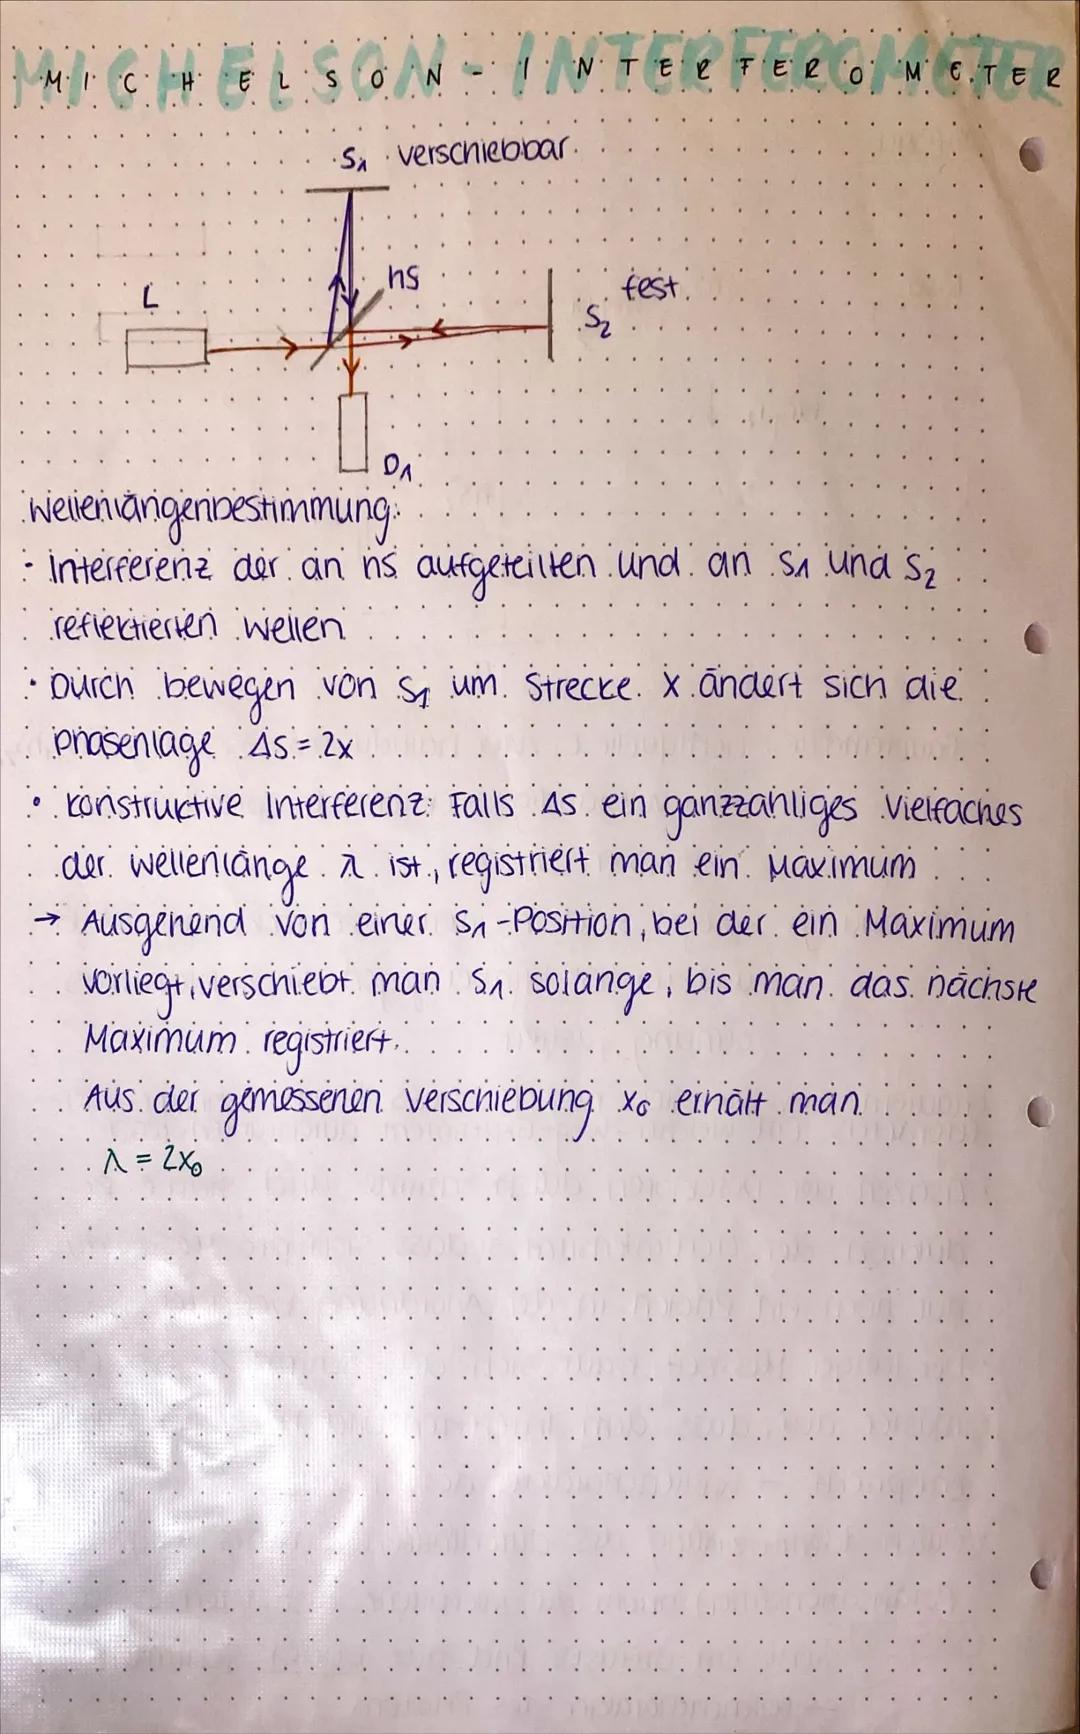 MICHELSON-INTERFEROMETER
S1 verschiebbar
hs
L
fest
S2
D1
Wellenlängenbestimmung:
- Interferenz der an hs aufgeteilten und an S1 und S2
reflektierten Wellen
· Durch bewegen von S1 um Strecke x ändert sich die
Phasenlage Δs = 2x
· konstruktive Interferenz: Falls Δs ein ganzzahliges Vielfaches
der Wellenlänge λ ist, registriert man ein Maximum
→ Ausgehend von einer S1-Position, bei der ein Maximum
vorliegt, verschiebt man S1 solange, bis man das nächste
Maximum registriert.
Aus der gemessenen Verschiebung x0 erhält man
λ = 2x0